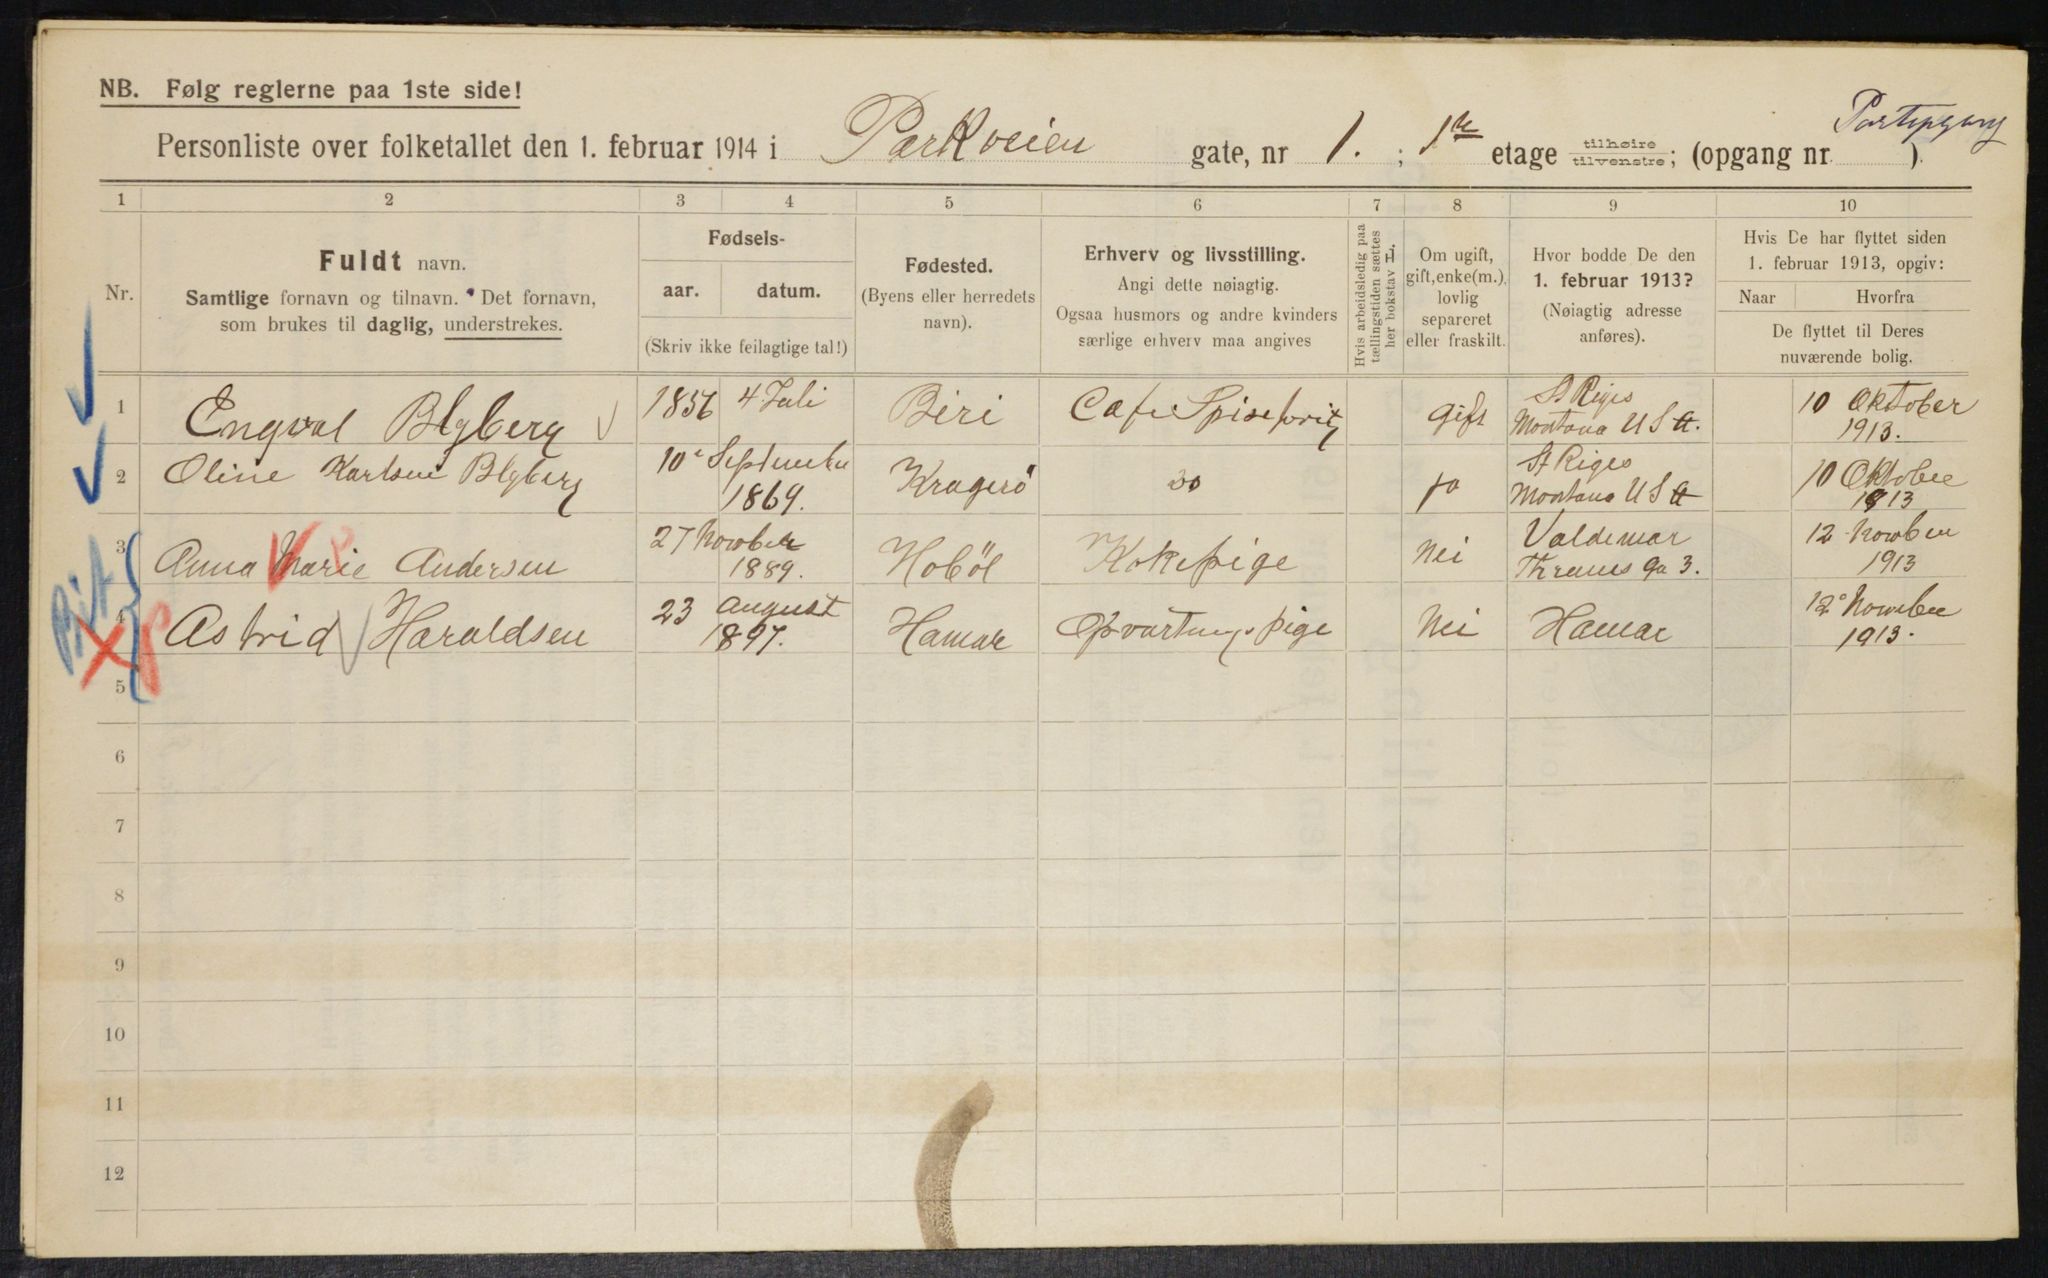 NB. Følg reglerne paa 1ste side!
Personliste over folketallet den 1. februar 1914 i Parkveien gate, nr 1. ; 1te etage tilhøire tilvenstre; (opgang nr. ).
1 2 3 4 5 6 7 8 9 10
Nr.
Fuldt navn.
Samtlige fornavn og tilnavn. Det fornavn,
som brukes til daglig, understrekes.
Fødsels-
aar. datum.
(Skriv ikke feilagtige tal!)
Fødested.
(Byens eller herredets
navn).
Erhverv og livsstilling.
Angi dette nøiagtig.
Ogsaa husmors og andre kvinders
særlige erhverv maa angives
Hvis arbeidsledig paa
tællingstiden sættes
her bokstav L.
Om ugift,
gift, enke(m.),
lovlig
separeret
eller fraskilt.
Hvor bodde De den
1. februar 1913?
(Nøiagtig adresse
anføres).
Hvis De har flyttet siden
1. februar 1913, opgiv:
Naar Hvorfra
De flyttet til Deres
nuværende bolig.
1 Engval Blyberg 1856 4 Juli Biri Cafe Spise gift St Riges Montana USA. 10 Oktober 1913.
2 Oline Karlsen Blyberg 10 September 1869. Kragerö do St Riges Montana USA 10 Oktober 1913
3 Anna Marie Andersen 27 November 1889. Hoböl Kokepige Nei Valdemar Thranes ga 3. 12 November 1913
4 Astrid Haraldsen 23 august 1897. Hamar Opvartungspige Nei Hamar 12 November 1913.
5
6
7
8
9
10
11
12